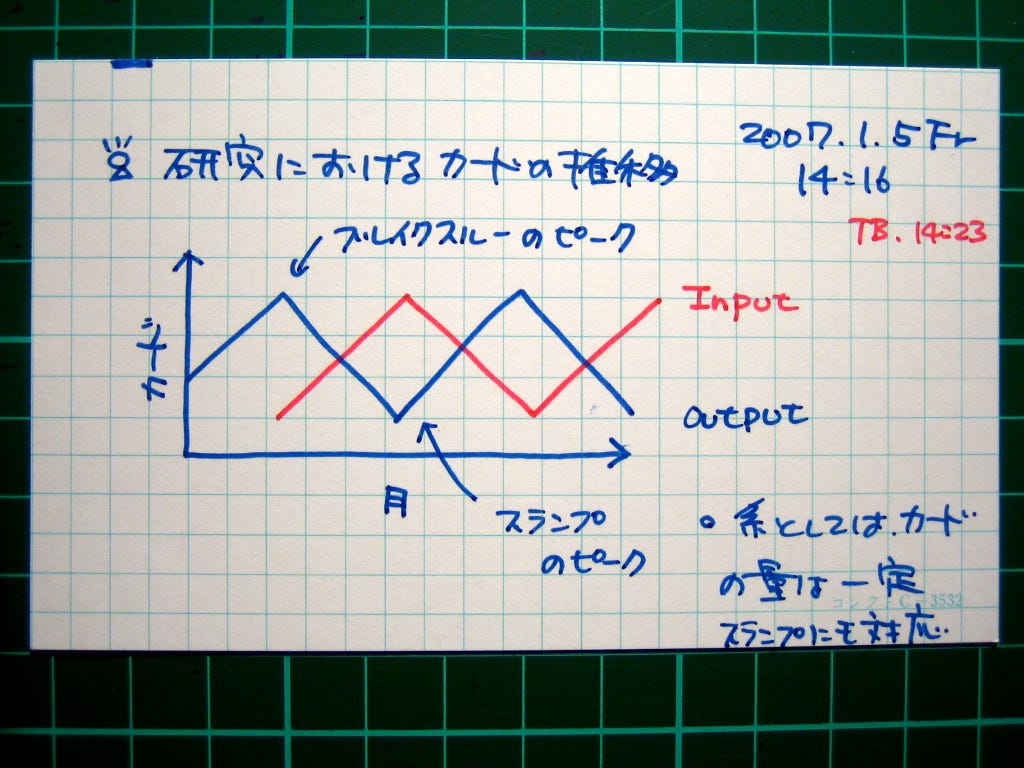 2007.1.5 Fr
14:16
TB. 14:23
研究におけるカードの推移
ブレイクスルーのピーク
カード
Input
Output
月
スランプ
のピーク
。系としては、カード
の量は一定
スランプにも対応.
コレクト C-3532